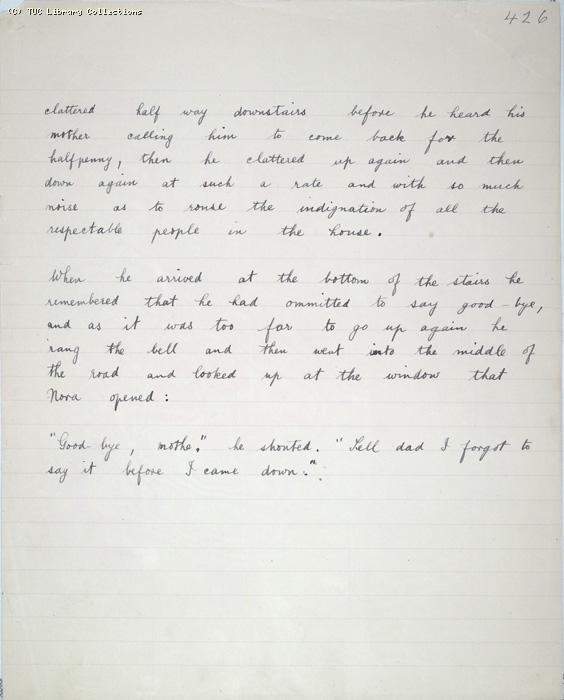 (C) TUC Library Collections
426
clattered half way downstairs before he heard his
mother calling him to come back for the
halfpenny, then he clattered up again and then
down again at such a rate and with so much
noise as to rouse the indignation of all the
respectable people in the house.
When he arrived at the bottom of the stairs he
remembered that he had ommitted to say good-bye,
and as it was too far to go up again he
rang the bell and then went into the middle of
the road and looked up at the window that
Nora opened:
"Good-bye, mother." he shouted. "Tell dad I forgot to
say it before I came down."